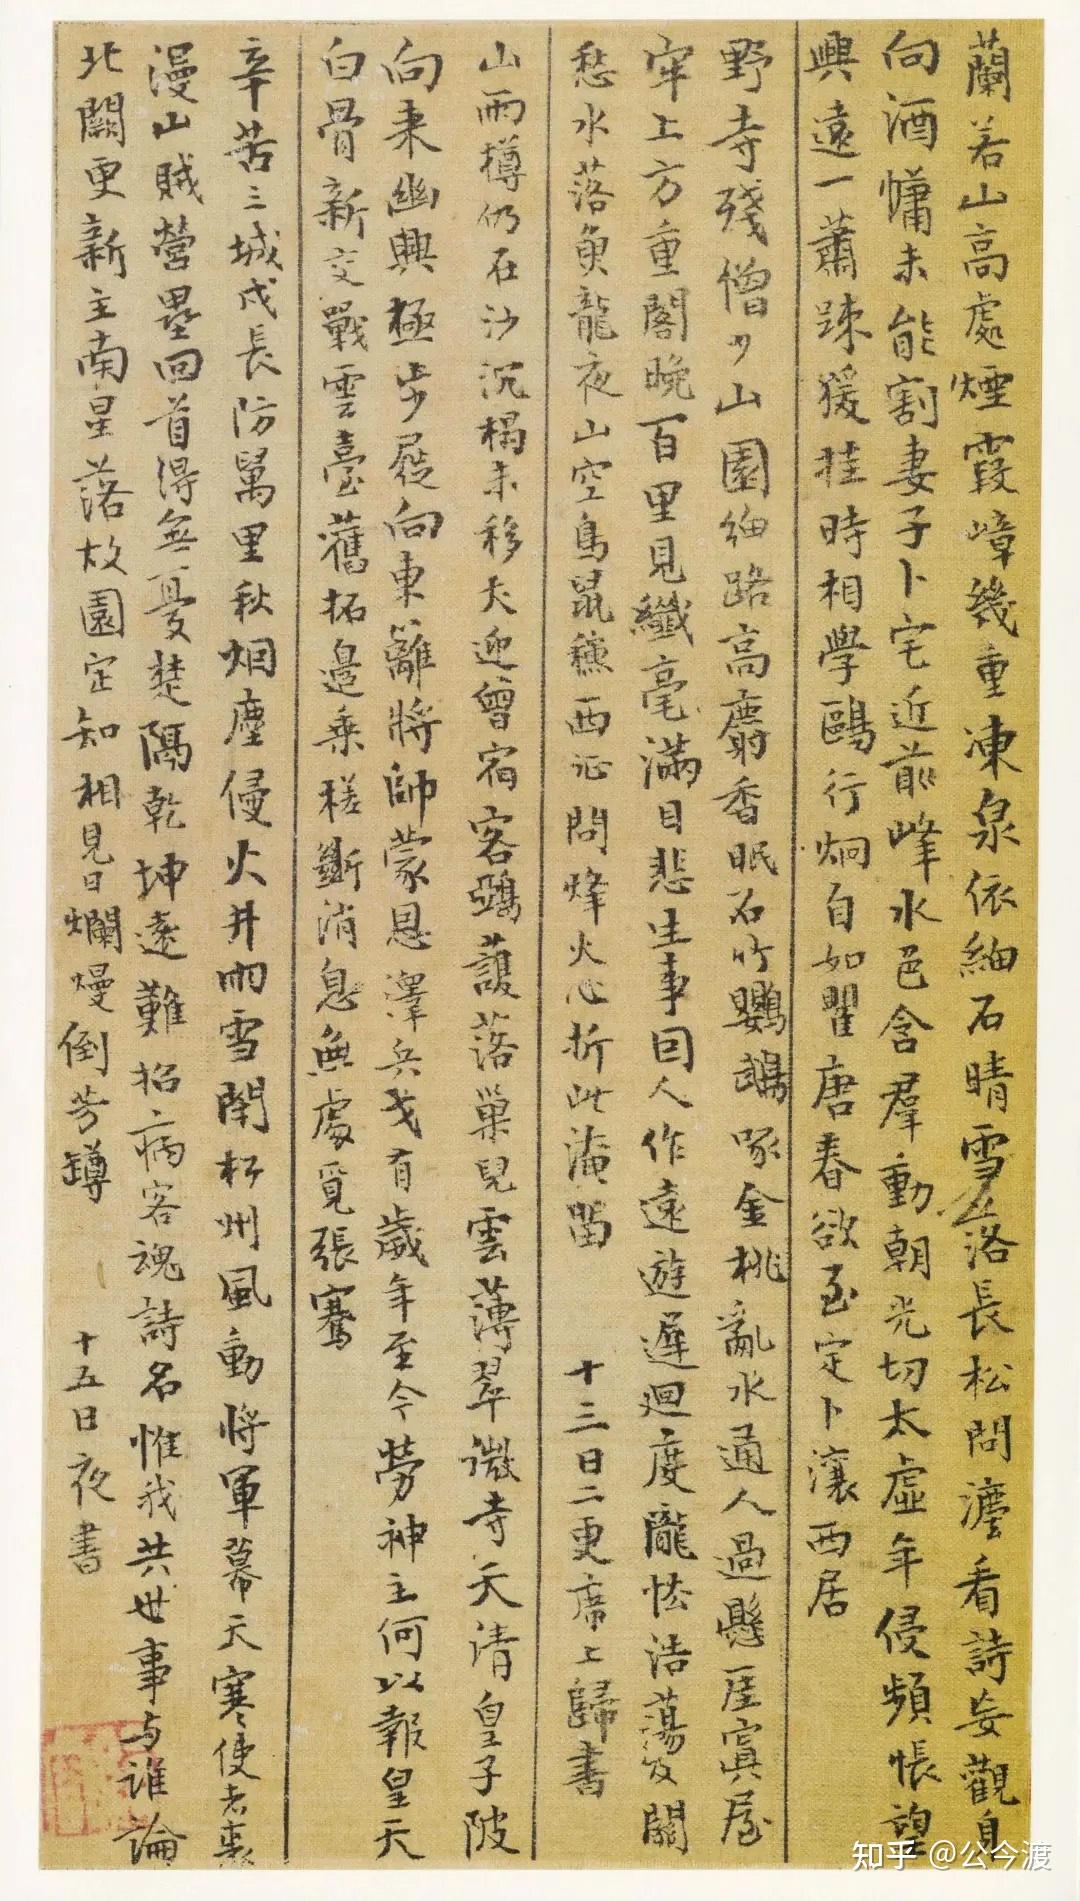 蘭若山高處煙霞嶂幾重凍泉依細石晴雪落長松問灋看詩妄觀身
向酒慵未能割妻子卜宅近前峰水色含羣動朝光切太虛年侵頻悵望
興遠一蕭踈猨挂時相學鷗行炯自如瞿唐春欲至定卜瀼西居
野寺殘僧少山園細路高麝香眠石竹鸚鵡啄金桃亂水通人過懸崖寘屋
牢上方重閣晚百里見纖毫滿目悲生事因人作遠遊遲迴度隴怯浩蕩及關
愁水落魚龍夜山空鳥鼠穐西征問烽火心折此淹留 十三日二更席上歸書
山雨樽仍在沙沉榻未移犬迎曾宿客鴉護落巢兒雲薄翠微寺天清皇子陂
向來幽興極步屐向東籬將帥蒙恩澤兵戈有歲年至今勞神主何以報皇天
白骨新交戰雲臺舊拓邊乗槎斷消息無處覓張騫
辛苦三城戍長防萬里秋烟塵侵火井雨雪閉松州風動將軍幕天寒使者裘
漫山賊營壘回首得無憂楚隔乾坤遠難招病客魂詩名惟我共世事与誰論
北闕更新主南星落故園定知相見日爛熳倒芳罇 十五日夜書
知乎 @公今渡